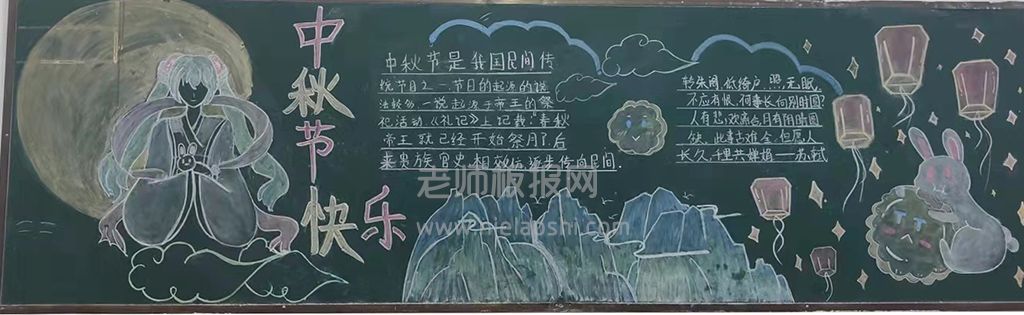 中秋节快乐
中秋节是我国民间传
统节日之一.节日的起源的说
法较多一说起源于帝王的祭
祀活动《礼记》上记载:春秋
帝王就已经开始祭月了后
来贵族官吏相效仿逐步传向民间.
转朱阁,低绮户,照无眠,
不应有恨,何事长向别时圆?
人有悲欢离合月有阴晴圆
缺,此事古难全,但愿人
长久,千里共婵娟——苏轼
老师板报网